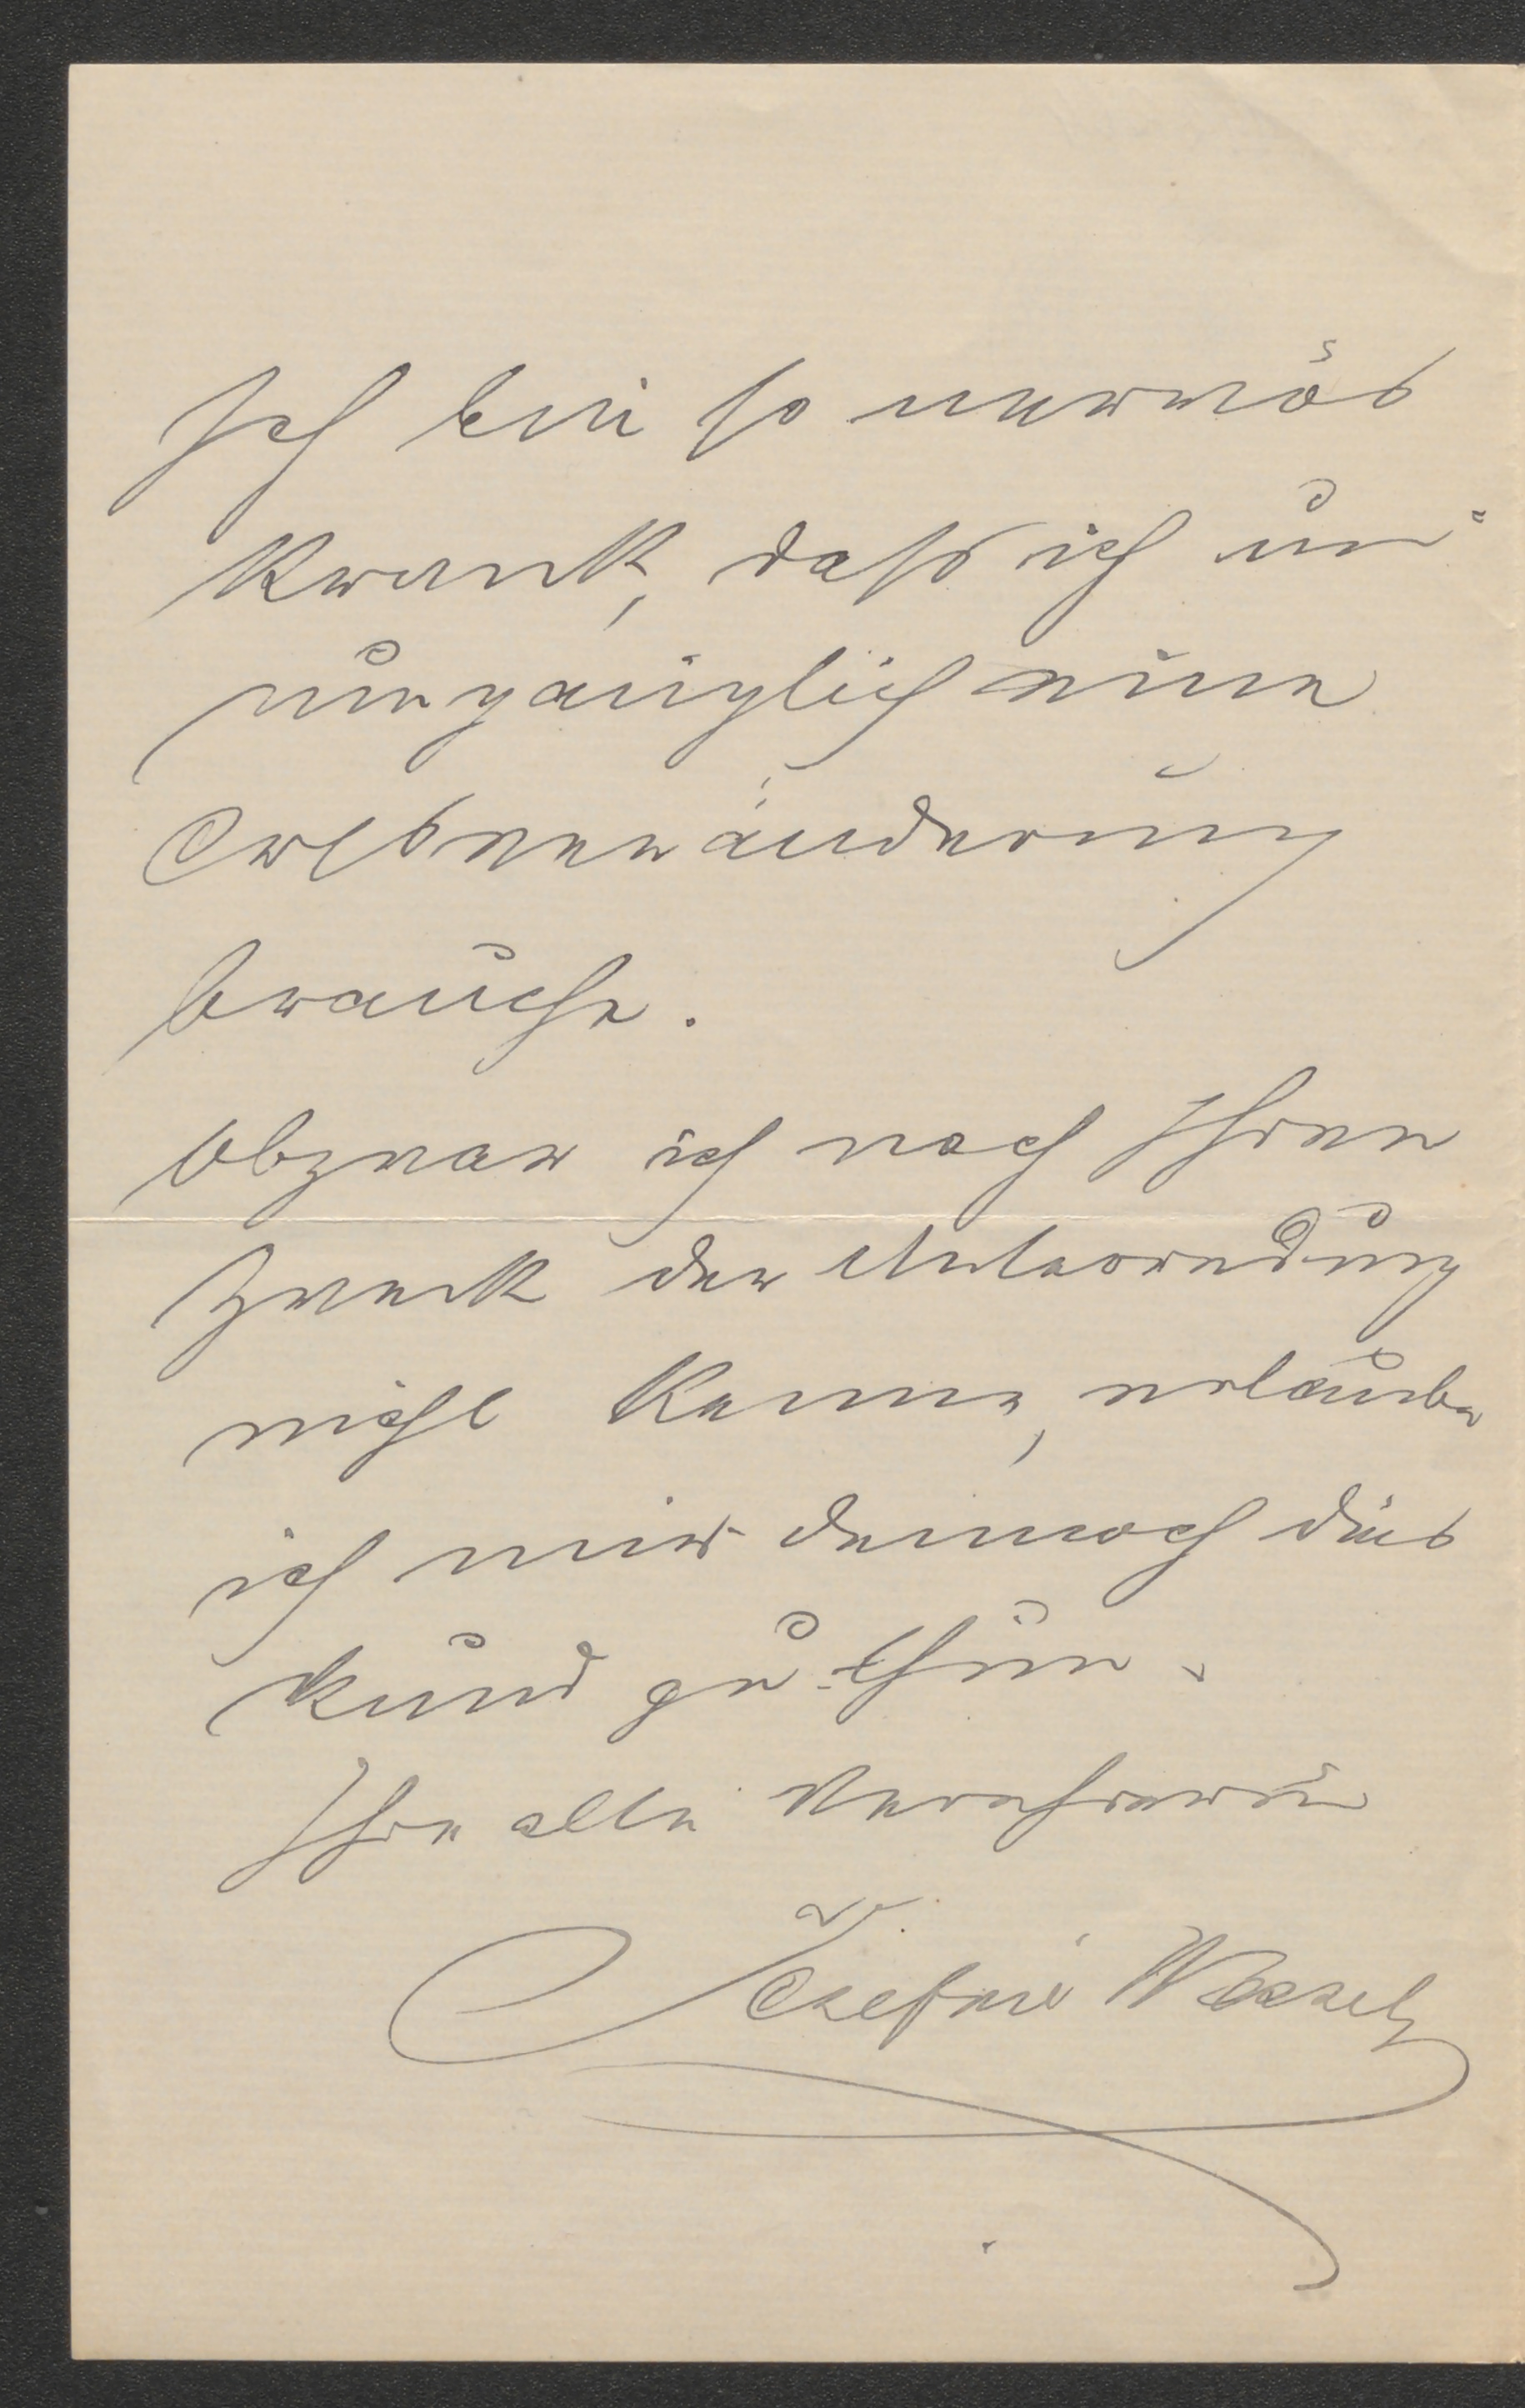 Ich bin so nervös
krank, daß ich un-
umgänglich eine
Ortsveränderung
brauche.
Obzwar ich noch Ihren
Zweck der Unterredung
nicht kenne, erlaube
ich mir dennoch dies
kund zu thun.
Ihre alte Verehrerin
Josefine Wessely